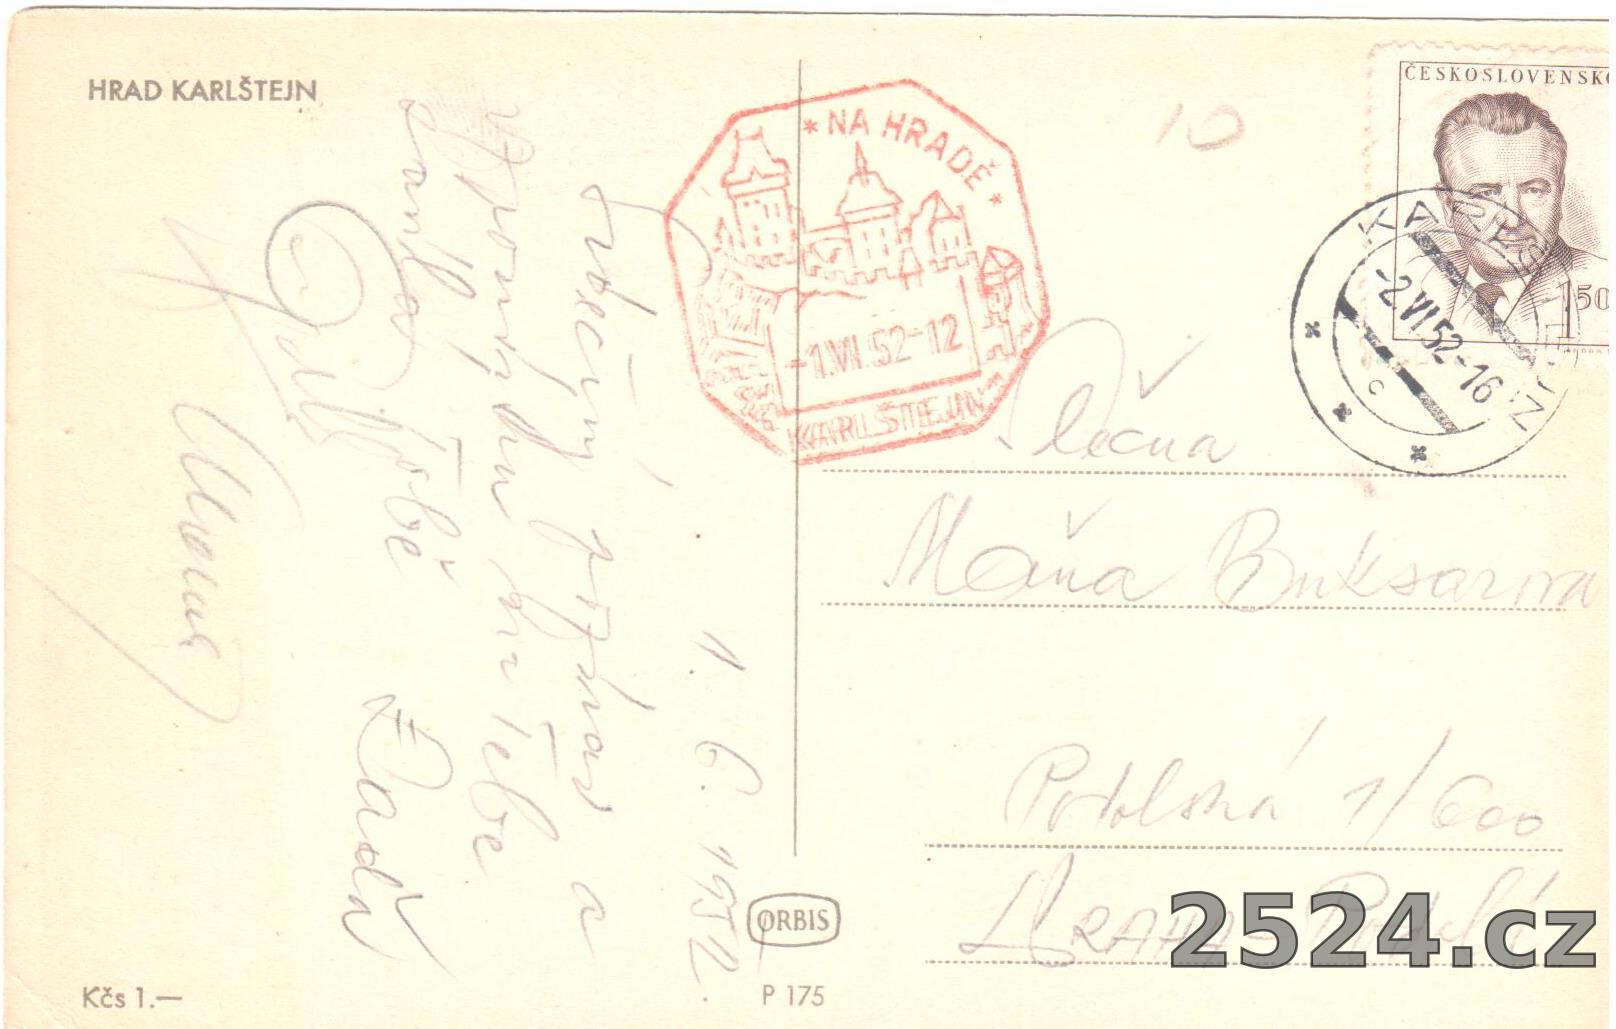 HRAD KARLŠTEJN
* NA HRADĚ *
-1.VI.52-12
KARLŠTEJN
10
ČESKOSLOVENSKO
1 50
-2.VI.52-16
C
1. 6. 1952.
Srdečný pozdrav a
vzpomínku na Tebe
Tobě
Slečna
Máňa Buksarova
Podolská 1/600
PRAHA - Podolí
ORBIS
Kčs 1.—
P 175
2524.cz